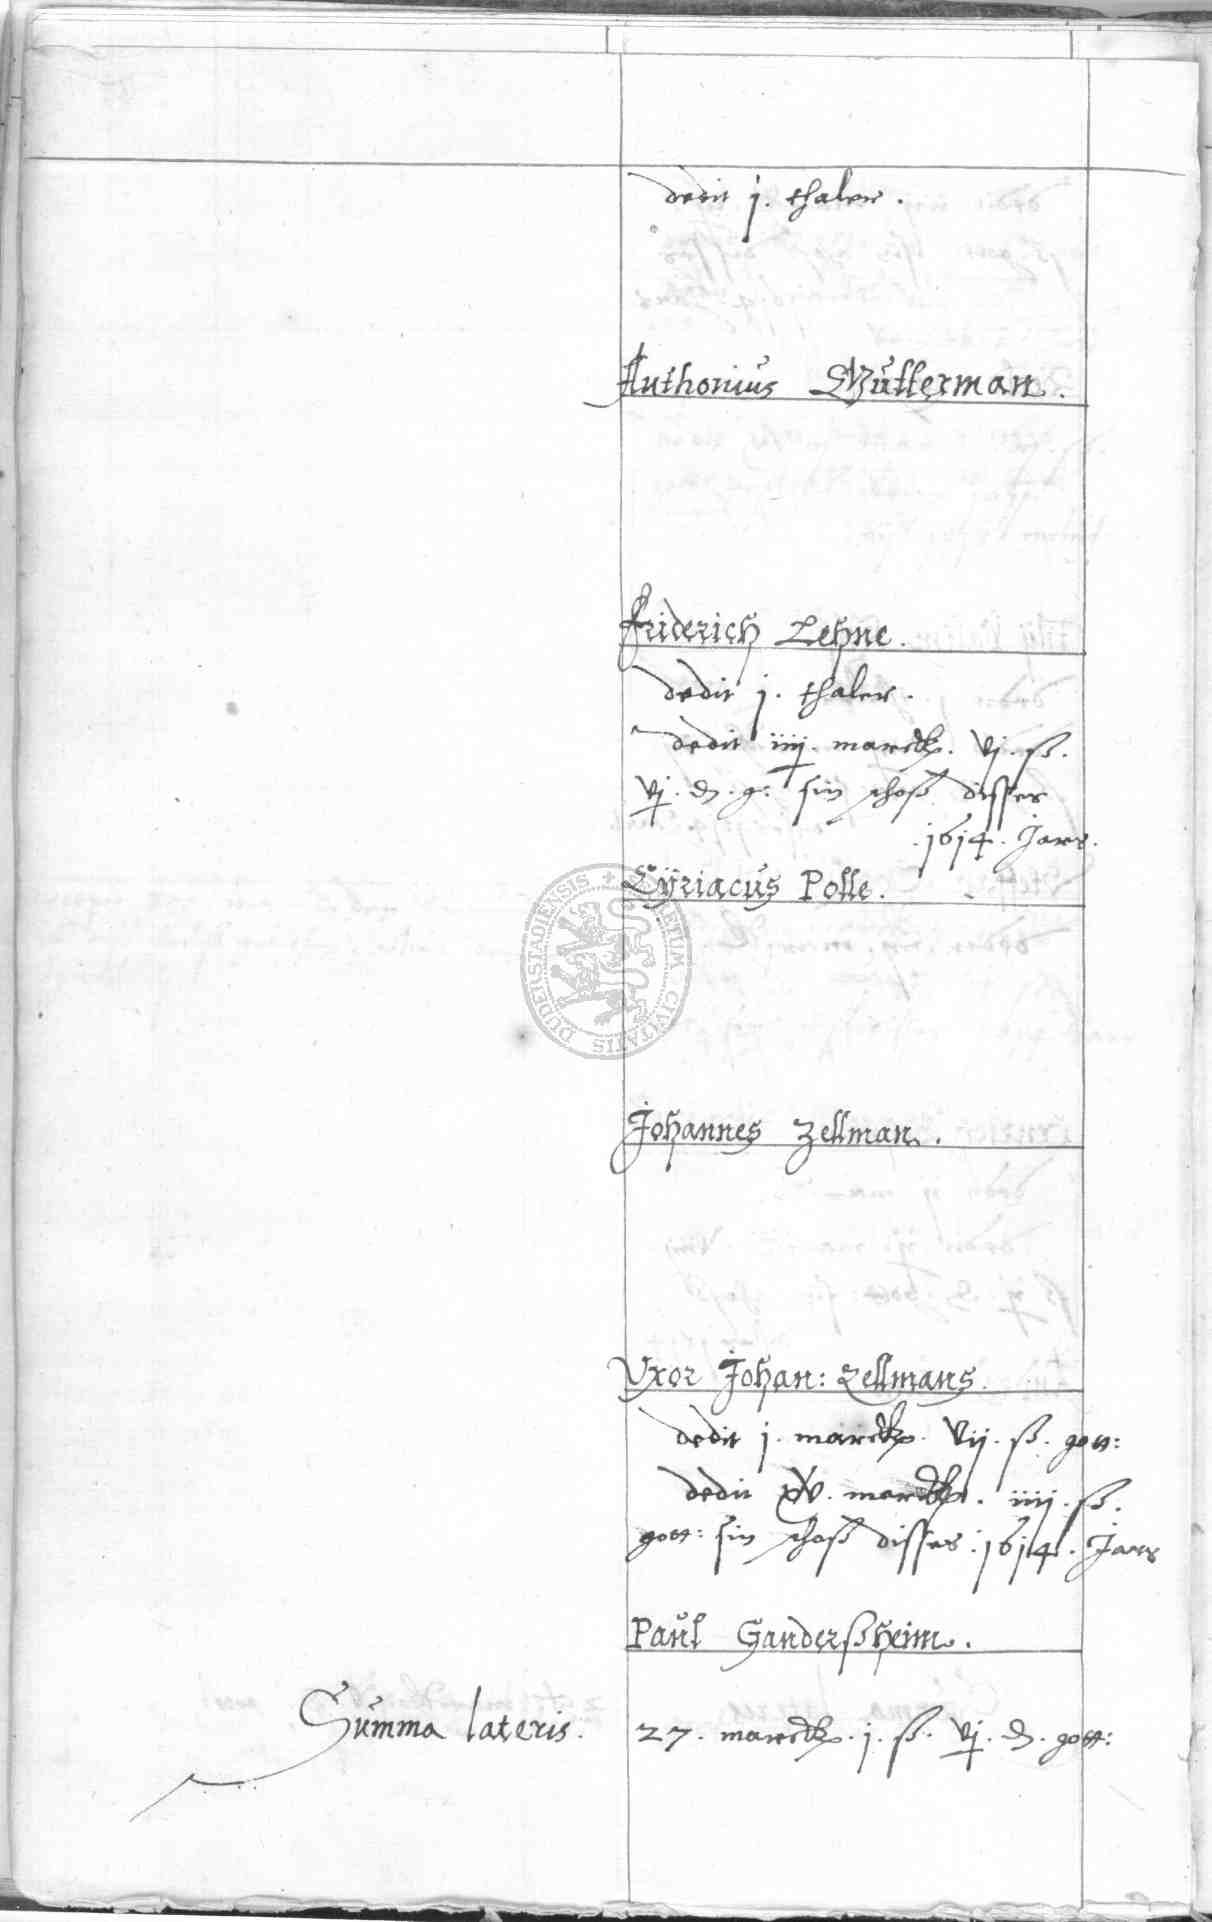 dedit j. thaler.
Anthonius Müllerman.
Friderich Lehne.
dedit j. thaler.
dedit iiij. marck. vj. ß.
vj. d. g: sin schoß disses
.1614. Jars.
Cÿriacus Polle.
Johannes Zellman.
Vxor Johan: Zellmans.
dedit j. marck. vij. ß. gott:
dedit xv. marck. iiij. ß.
gott: sin schoß disses .1614. Jars
Paul Ganderßheim.
Summa lateris. 27. marck. j. ß. vj. d. gott:
SECRETUM CIVITATIS DUDERSTADIENSIS